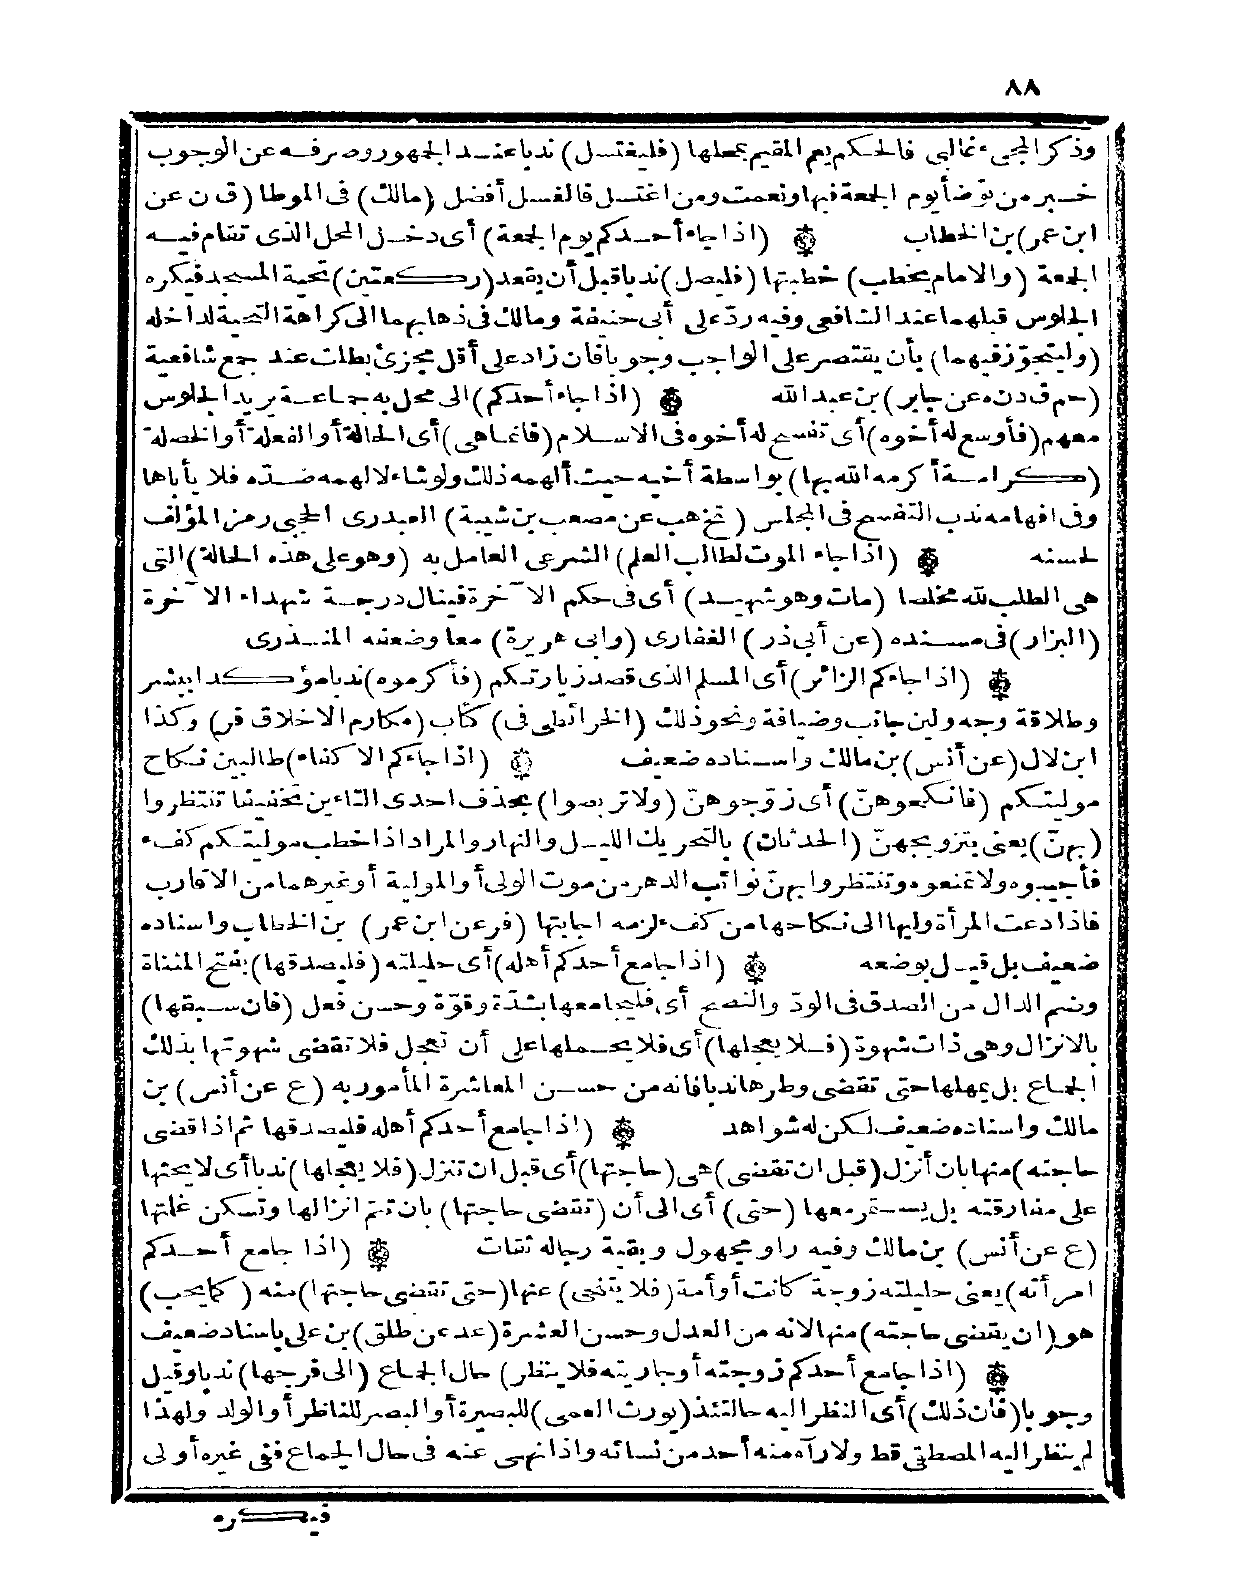 ٨٨
وذكر المجىء غالبى فالحكم يعم المقيم بمحلها (فليغتسل) ندبا عند الجمهور وصرفه عن الوجوب
خبر من توضأ يوم الجمعة فبها ونعمت ومن اغتسل فالغسل أفضل (مالك) فى الموطا (ق ن عن
ابن عمر) بن الخطاب (اذا جاء أحدكم يوم الجمعة) أى دخل المحل الذى تقام فيه
الجمعة (والامام يخطب) خطبتها (فليصل) ندبا قبل أن يقعد (ركعتين) تحية المسجد فيكره
الجلوس قبلهما عند الشافعى وفيه ردّ على أبى حنيفة ومالك فى ذهابهما الى كراهة التحية لداخله
(وليتجوّز فيهما) بأن يقتصر على الواجب وجوبا فان زاد على أقل مجزئ بطلت عند جمع شافعية
(حم ق د ن ه عن جابر) بن عبد الله (اذا جاء أحدكم) الى محل به جماعة يريد الجلوس
معهم (فأوسع له أخوه) أى تفسح له أخوه فى الاسلام (فانما هى) أى الحالة أو الفعلة أو الخصلة
(كرامة أكرمه الله بها) بواسطة أخيه حيث ألهمه ذلك ولو شاء لالهمه ضدّه فلا يأباها
وفى افهامه ندب التفسح فى المجلس (تخ هب عن مصعب بن شيبة) العبدرى الحجبى رمز المؤلف
لحسنه (اذا جاء الموت لطالب العلم) الشرعى العامل به (وهو على هذه الحالة) التى
هى الطلب لله مخلصا (مات وهو شهيد) أى فى حكم الآخرة فينال درجة شهداء الآخرة
(البزار) فى مسنده (عن أبى ذر) الغفارى (وابى هريرة) معا وضعفه المنذرى
(اذا جاءكم الزائر) أى المسلم الذى قصد زيارتكم (فأكرموه) ندبا مؤكدا ببشر
وطلاقة وجه ولين جانب وضيافة ونحو ذلك (الخرائطى فى) كتاب (مكارم الاخلاق فر) وكذا
ابن لال (عن أنس) بن مالك واسناده ضعيف (اذا جاءكم الاكفاء) طالبين نكاح
موليتكم (فانكحوهنّ) أى زوّجوهنّ (ولا تربصوا) بحذف احدى التاءين تخفيفا تنتظروا
(بهنّ) يعنى بتزويجهنّ (الحدثان) بالتحريك الليل والنهار والمراد اذا خطب موليتكم كفء
فأجيبوه ولا تمنعوه وتنتظروا بهنّ نوائب الدهر من موت الولى أو المولية أو غيرهما من الاقارب
فاذا دعت المرأة وليها الى نكاحها من كفء لزمه اجابتها (فر عن ابن عمر) بن الخطاب واسناده
ضعيف بل قيل بوضعه (اذا جامع أحدكم أهله) أى حليلته (فليصدقها) بفتح المثناة
وضم الدال من الصدق فى الودّ والنصح أى فليجامعها بشدّة وقوّة وحسن فعل (فان سبقها)
بالانزال وهى ذات شهوة (فلا يعجلها) أى فلا يحملها على أن تعجل فلا تقضى شهوتها بذلك
الجماع بل يمهلها حتى تقضى وطرها ندبا فانه من حسن المعاشرة المأمور به (ع عن أنس) بن
مالك واسناده ضعيف لكن له شواهد (اذا جامع أحدكم أهله فليصدقها ثم اذا قضى
حاجته) منها بان أنزل (قبل ان تقضى) هى (حاجتها) أى قبل ان تنزل (فلا يعجلها) ندبا أى لا يحثها
على مفارقته بل يستمر معها (حتى) أى الى أن (تقضى حاجتها) بان تتم انزالها وتسكن غلتها
(ع عن أنس) بن مالك وفيه راو مجهول وبقية رجاله ثقات (اذا جامع أحدكم
امرأته) يعنى حليلته زوجة كانت أو أمة (فلا يتنحى) عنها (حتى تقضى حاجتها) منه (كما يحب)
هو (ان يقضى حاجته) منها لانه من العدل وحسن العشرة (عد عن طلق) بن على باسناد ضعيف
(اذا جامع أحدكم زوجته أو جاريته فلا ينظر) حال الجماع (الى فرجها) ندبا وقيل
وجوبا (فان ذلك) أى النظر اليه حالتئذ (يورث العمى) للبصيرة أو البصر للناظر أو الولد ولهذا
لم ينظر اليه المصطفى قط ولا رآه منه أحد من نسائه واذا نهى عنه فى حال الجماع ففى غيره أولى
فيكره